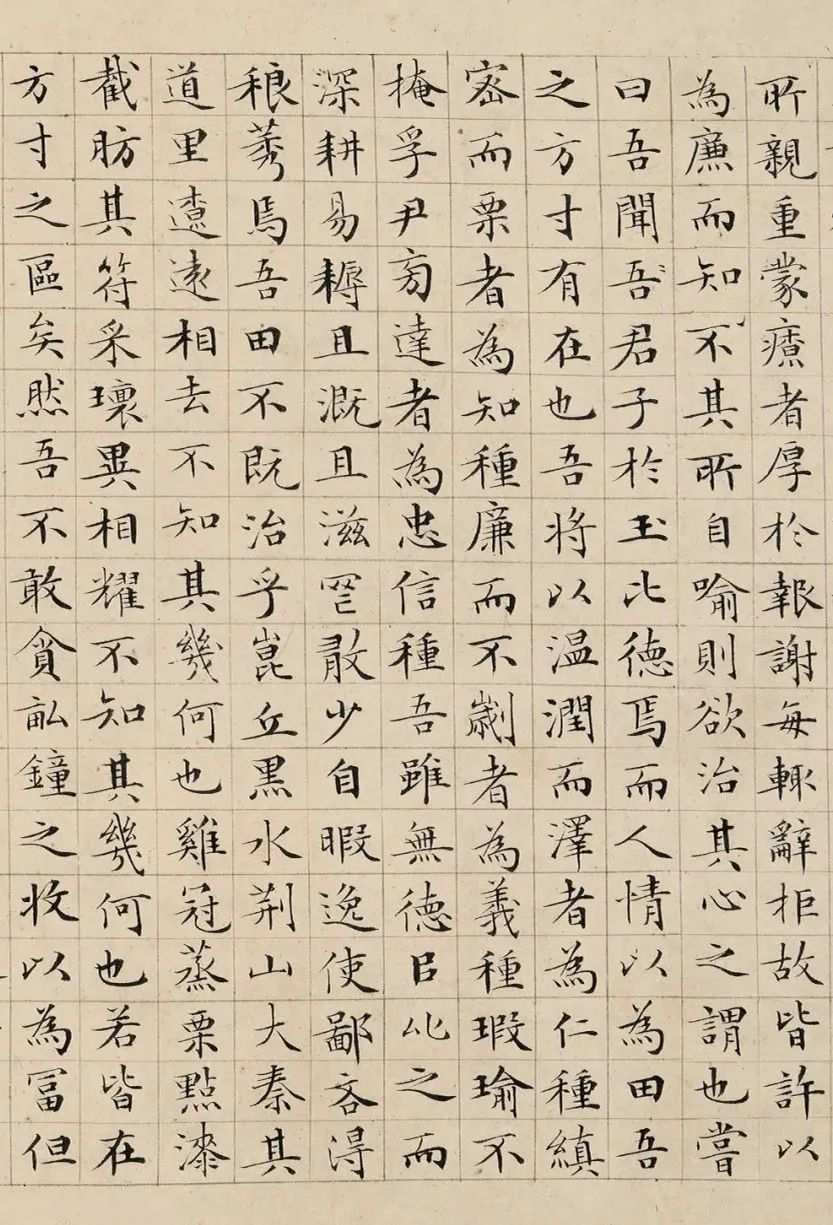 所親重蒙瘝者厚於報謝每輒辭拒故皆許以
為廉而知不其所自喻則欲治其心之謂也嘗
曰吾聞吾君子於玉比德焉而人情以為田吾
之方寸有在也吾將以温潤而澤者為仁種縝
宻而栗者為知種廉而不劌者為義種瑕瑜不
掩孚尹旁達者為忠信種吾雖無德以此之而
深耕易耨且溉且滋罔敢少自暇逸使鄙吝得
稂莠焉吾田不既治乎崑丘黑水荆山大秦其
道里遼遠相去不知其幾何也雞冠蒸栗點漆
截肪其符采瓌異相耀不知其幾何也若皆在
方寸之區矣然吾不敢貪畝鐘之收以為冨但